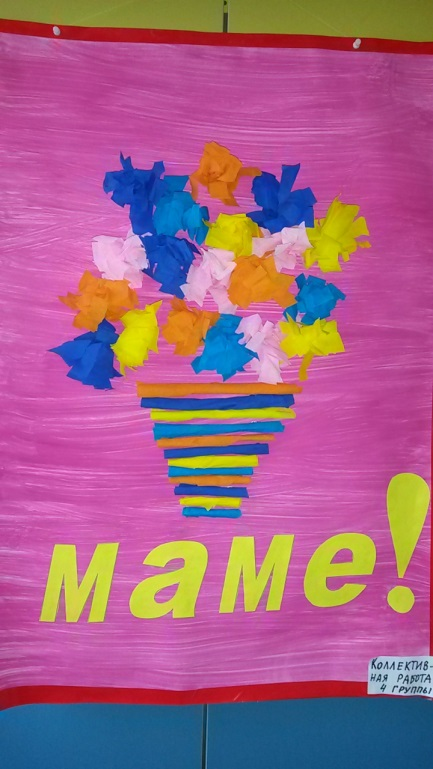 маме!
КОЛЛЕКТИВ-
НАЯ РАБОТА
4 ГРУППЫ